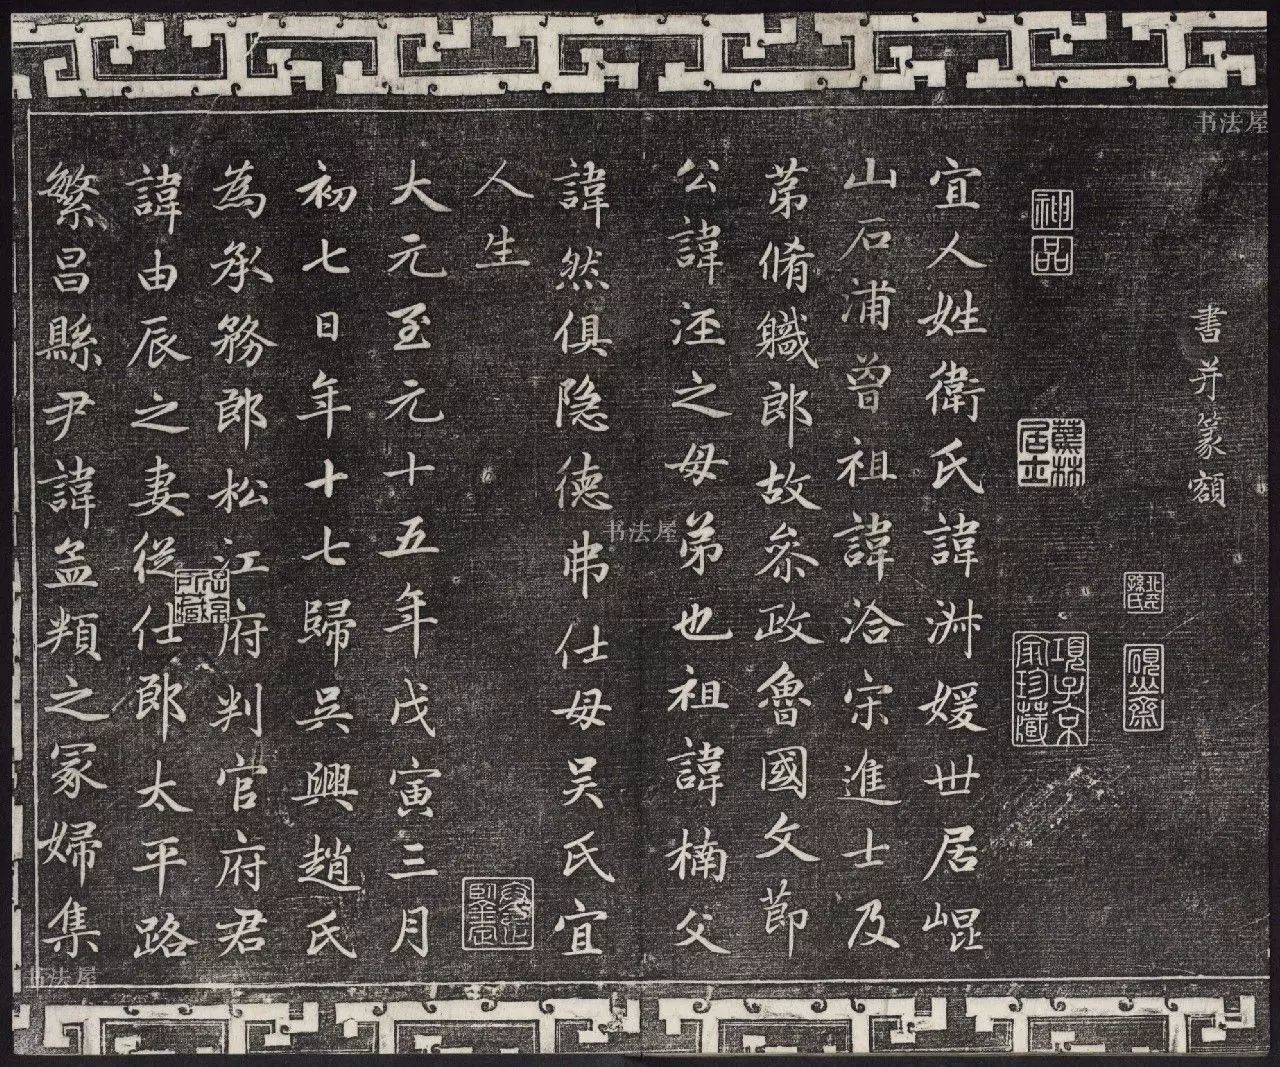 書并篆額
神品
蕉林居士
北平孫氏
硯山齋
項子京家珍藏
宜人姓衛氏諱淑媛世居崐
山石浦曾祖諱洽宗進士及
苐脩職郎故叅政魯國文節
公諱涇之母弟也祖諱楠父
諱然俱隐德弗仕母吴氏宜
人生
大元至元十五年戊寅三月
初七日年十七歸吴興趙氏
為承務郎松江府判官府君
諱由辰之妻從仕郎太平路
繁昌縣尹諱孟頖之冢婦集
书法屋
书法屋
书法屋